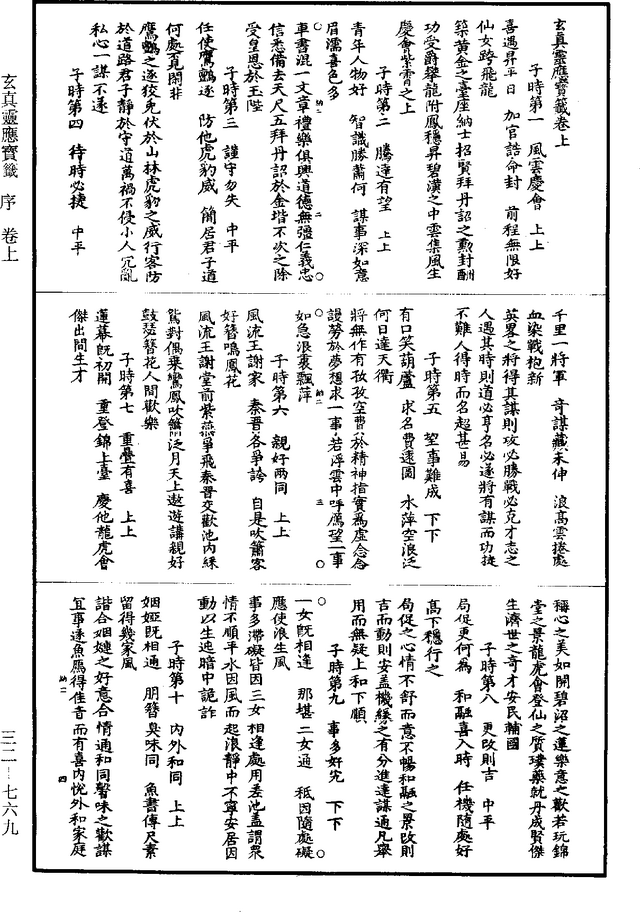 玄真靈應寶籤卷上
子時第一　風雲慶會　上上
喜遇昇平日　加官誥命封　前程無限好
仙女跨飛龍
築黃金之臺座納士招賢拜丹詔之勳封酬
功受爵攀龍附鳳穩昇碧漢之中雲集風生
慶會紫霄之上
子時第二　騰達有望　上上
青年人物好　智識勝蕭何　謀事深如意
眉濡喜色多
車書混一文章禮樂俱興道德無疆仁義忠
信悉備去天尺五拜丹詔於金堦不次之除
受皇恩於玉陛
子時第三　謹守勿失　中平
任使鷹鸇逐　防他虎豹威　簡居君子道
何處覓閑非
鷹鸇之逐狡兎伏於山林虎豹之威行客防
於道路君子靜於守道萬禍不侵小人冗亂
私心一謀不遂
子時第四　待時必捷　中平
千里一將軍　奇謀藏未伸　浪高雲捲處
血染戰袍新
英畧之將得其謀則攻必勝戰必克才志之
人遇其時則道必亨名必遂將有謀而功捷
不難人得時而名超甚易
子時第五　望事難成　下下
有口笑葫蘆　求名費遠圖　水萍空浪泛
何日達天衢
將無作有孜孜空費於精神指實爲虛念念
謾勞於夢想求一事若浮雲中呼鴈望一事
如急浪裏飄萍
子時第六　親好兩同　上上
風流王謝家　秦晋各爭誇　自是吹簫客
好簪鳴鳳花
風流王謝堂前紫燕爭飛秦晋交歡池內綵
鴛對偶乗鸞鳳吹簫泛月天上遨遊講親好
鼓瑟簪花人間歡樂
子時第七　重疊有喜　上上
蓮幕旣初開　重登錦上臺　慶他龍虎會
傑出間生才
稱心之美如開碧沼之蓮樂意之歡若玩錦
堂之景龍虎會登仙之質瓊藥就丹成賢傑
生濟世之奇才安民輔國
子時第八　更改則吉　中平
局促更何爲　和融喜入時　任機隨處好
髙下穩行之
局促之心情不舒而意不暢和融之景改則
吉而動則安盖機緩之有分進達謀通凡舉
用而無疑上和下順
子時第九　事多好宄　下下
一女旣相逢　那堪二女通　秪因隨處礙
應使浪生風
事多滯礙皆因三女相逢處用差池盖謂衆
情不順平水因風而起浪靜中不寧安居因
動以生迍暗中詭詐
子時第十　內外和同　上上
姻婭旣相通　朋簪臭味同　魚書傳尺素
留得幾家風
諧合姻嫿之好意合情通和同馨味之歡謀
冝事遂魚鴈得佳音而有喜內恱外和家庭
玄真靈應寶籤　序　卷上
三二―七六九